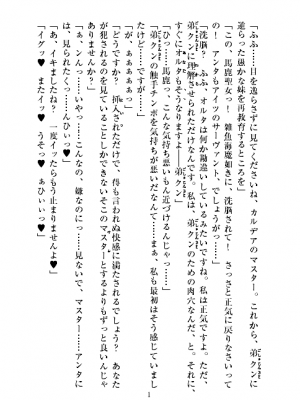 「ふふ……目を逸らさずに見てくださいね、カルデアのマスター。これから、弟クンに
逆らった愚かな妹を再教育するところを」
「この、馬鹿聖女っ！　雑魚海魔如きに、洗脳されて！　さっさと正気に戻りなさいって
の！　アンタもアイツのサーヴァント、でしょうがっ……」
「洗脳？　ふふ、オルタは何か勘違いしているみたいですね。私は正気ですよ。ただ、
弟クンに理解させられただけなんです。私は、弟クンのための肉穴なんだ、と。それに、
すぐにオルタもそうなりますよ――弟クン♥」
「ひっ……馬鹿っ、こんな気持ち悪いもん近づけるんじゃっ……」
「弟クンの触手チンポを気持ちが悪いだなんて……まぁ、私も最初はそう感じていまし
たけど……どうです？」
「が、ぁぁぁぁぁっ」
「どうですか？　挿入されただけで、得も言われぬ快感に満たされるでしょう？　あなた
が犯されるのを見ていることしかできないそこのマスターとするよりもずっと良いんじゃ
ありませんか？」
「な、ぁ、んんっ……いやっ……こんなの、嫌なのにっ……見ないで、マスター……アンタに
は、見られたくっ……んひぃっ♥」
「あ、イキましたね？　一度イッたらもう止まりませんよ♥」
「イグッ♥　またイッ♥　うそっ♥　あひぃいっ♥」
1